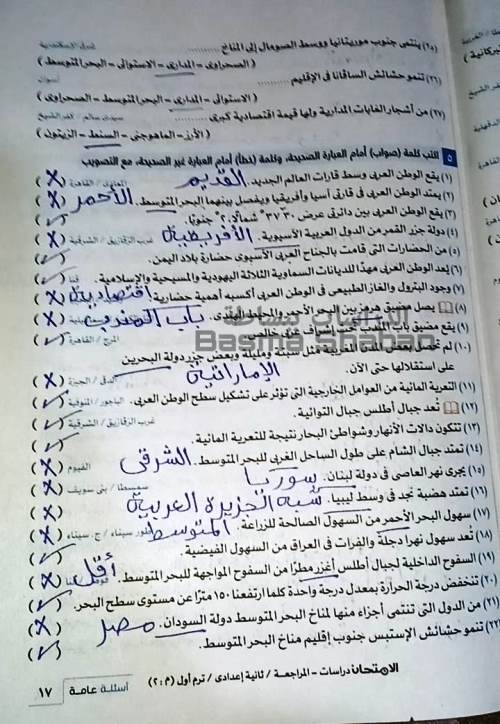 (٢٥) ينتمى جنوب موريتانيا ووسط الصومال إلى المناخ ..........
( الصحراوى – المدارى – الاستوائى – البحر المتوسط )
(٢٦) تنمو حشائش السافانا فى الإقليم .......... أسوان
( الاستوائى – المدارى – البحر المتوسط – الصحراوى )
(٢٧) من أشجار الغابات المدارية ولها قيمة اقتصادية كبرى ..........
( الأرز – الماهوجنى – السنط – الزيتون )
٥ اكتب كلمة (صواب) أمام العبارة الصحيحة، وكلمة (خطأ) أمام العبارة غير الصحيحة، مع التصويب
(١) يقع الوطن العربى وسط قارات العالم الجديد. القديم القاهرة ( X )
(٢) يمتد الوطن العربى فى قارتى آسيا وأفريقيا ويفصل بينهما البحر المتوسط. الأحمر ( X )
(٣) يقع الوطن العربى بين دائرتى عرض ٣٠ ٣٧° شمالًا، ٢° جنوبًا. ( ✓ )
(٤) دولة جزر القمر من الدول العربية الآسيوية. الأفريقية غرب الزقازيق / الشرقية ( X )
(٥) من الحضارات التى قامت بالجناح العربى الآسيوى حضارة بلاد اليمن. ( ✓ )
(٦) يعد الوطن العربى مهدًا للديانات السماوية الثلاثة اليهودية والمسيحية والإسلامية. ( ✓ )
(٧) وجود البترول والغاز الطبيعى فى الوطن العربى أكسبه أهمية حضارية اقتصادية ( X )
(٨) يصل مضيق هرمز بين البحر الأحمر والمحيط الهندى. باب المندب ( X )
(٩) يقع مضيق باب المندب تحت إشراف عربى خالص. المرج / القاهرة ( ✓ )
Basma Shaban
(١٠) لم تحصل بعض المدن المغربية مثل سبتة ومليلة وبعض جزر دولة البحرين
على استقلالها حتى الآن. الإماراتية الدقى / الجيزة ( X )
(١١) التعرية المائية من العوامل الخارجية التى تؤثر على تشكيل سطح الوطن العربى. الباجور / المنوفية ( ✓ )
(١٢) تُعد جبال أطلس جبال التوائية. غرب الزقازيق / الشرقية ( ✓ )
(١٣) تتكون دالات الأنهار وشواطئ البحار نتيجة للتعرية المائية. ( ✓ )
(١٤) تمتد جبال الشام على طول الساحل الغربى للبحر المتوسط. الشرقى الفيوم ( X )
(١٥) يجرى نهر العاصى فى دولة لبنان. سوريا سمسطا / بنى سويف ( X )
(١٦) تمتد هضبة نجد فى وسط ليبيا. شبه الجزيرة العربية ( X )
(١٧) سهول البحر الأحمر من السهول الصالحة للزراعة. المتوسط طور سيناء / ج. سيناء ( X )
(١٨) تُعد سهول نهرا دجلة والفرات فى العراق من السهول الفيضية. ( ✓ )
(١٩) السفوح الداخلية لجبال أطلس أغزر مطرًا من السفوح المواجهة للبحر المتوسط. أقل ( X )
(٢٠) تنخفض درجة الحرارة بمعدل درجة واحدة كلما ارتفعنا ١٥٠ مترًا عن مستوى سطح البحر. ( ✓ )
(٢١) من الدول التى تنتمى أجزاء منها لمناخ البحر المتوسط دولة السودان. مصر ( X )
(٢٢) تنمو حشائش الإستبس جنوب إقليم مناخ البحر المتوسط. ( ✓ )
الامتحان دراسات – المراجعة / ثانية إعدادى / ترم أول (م : ٢) أسئلة عامة ١٧